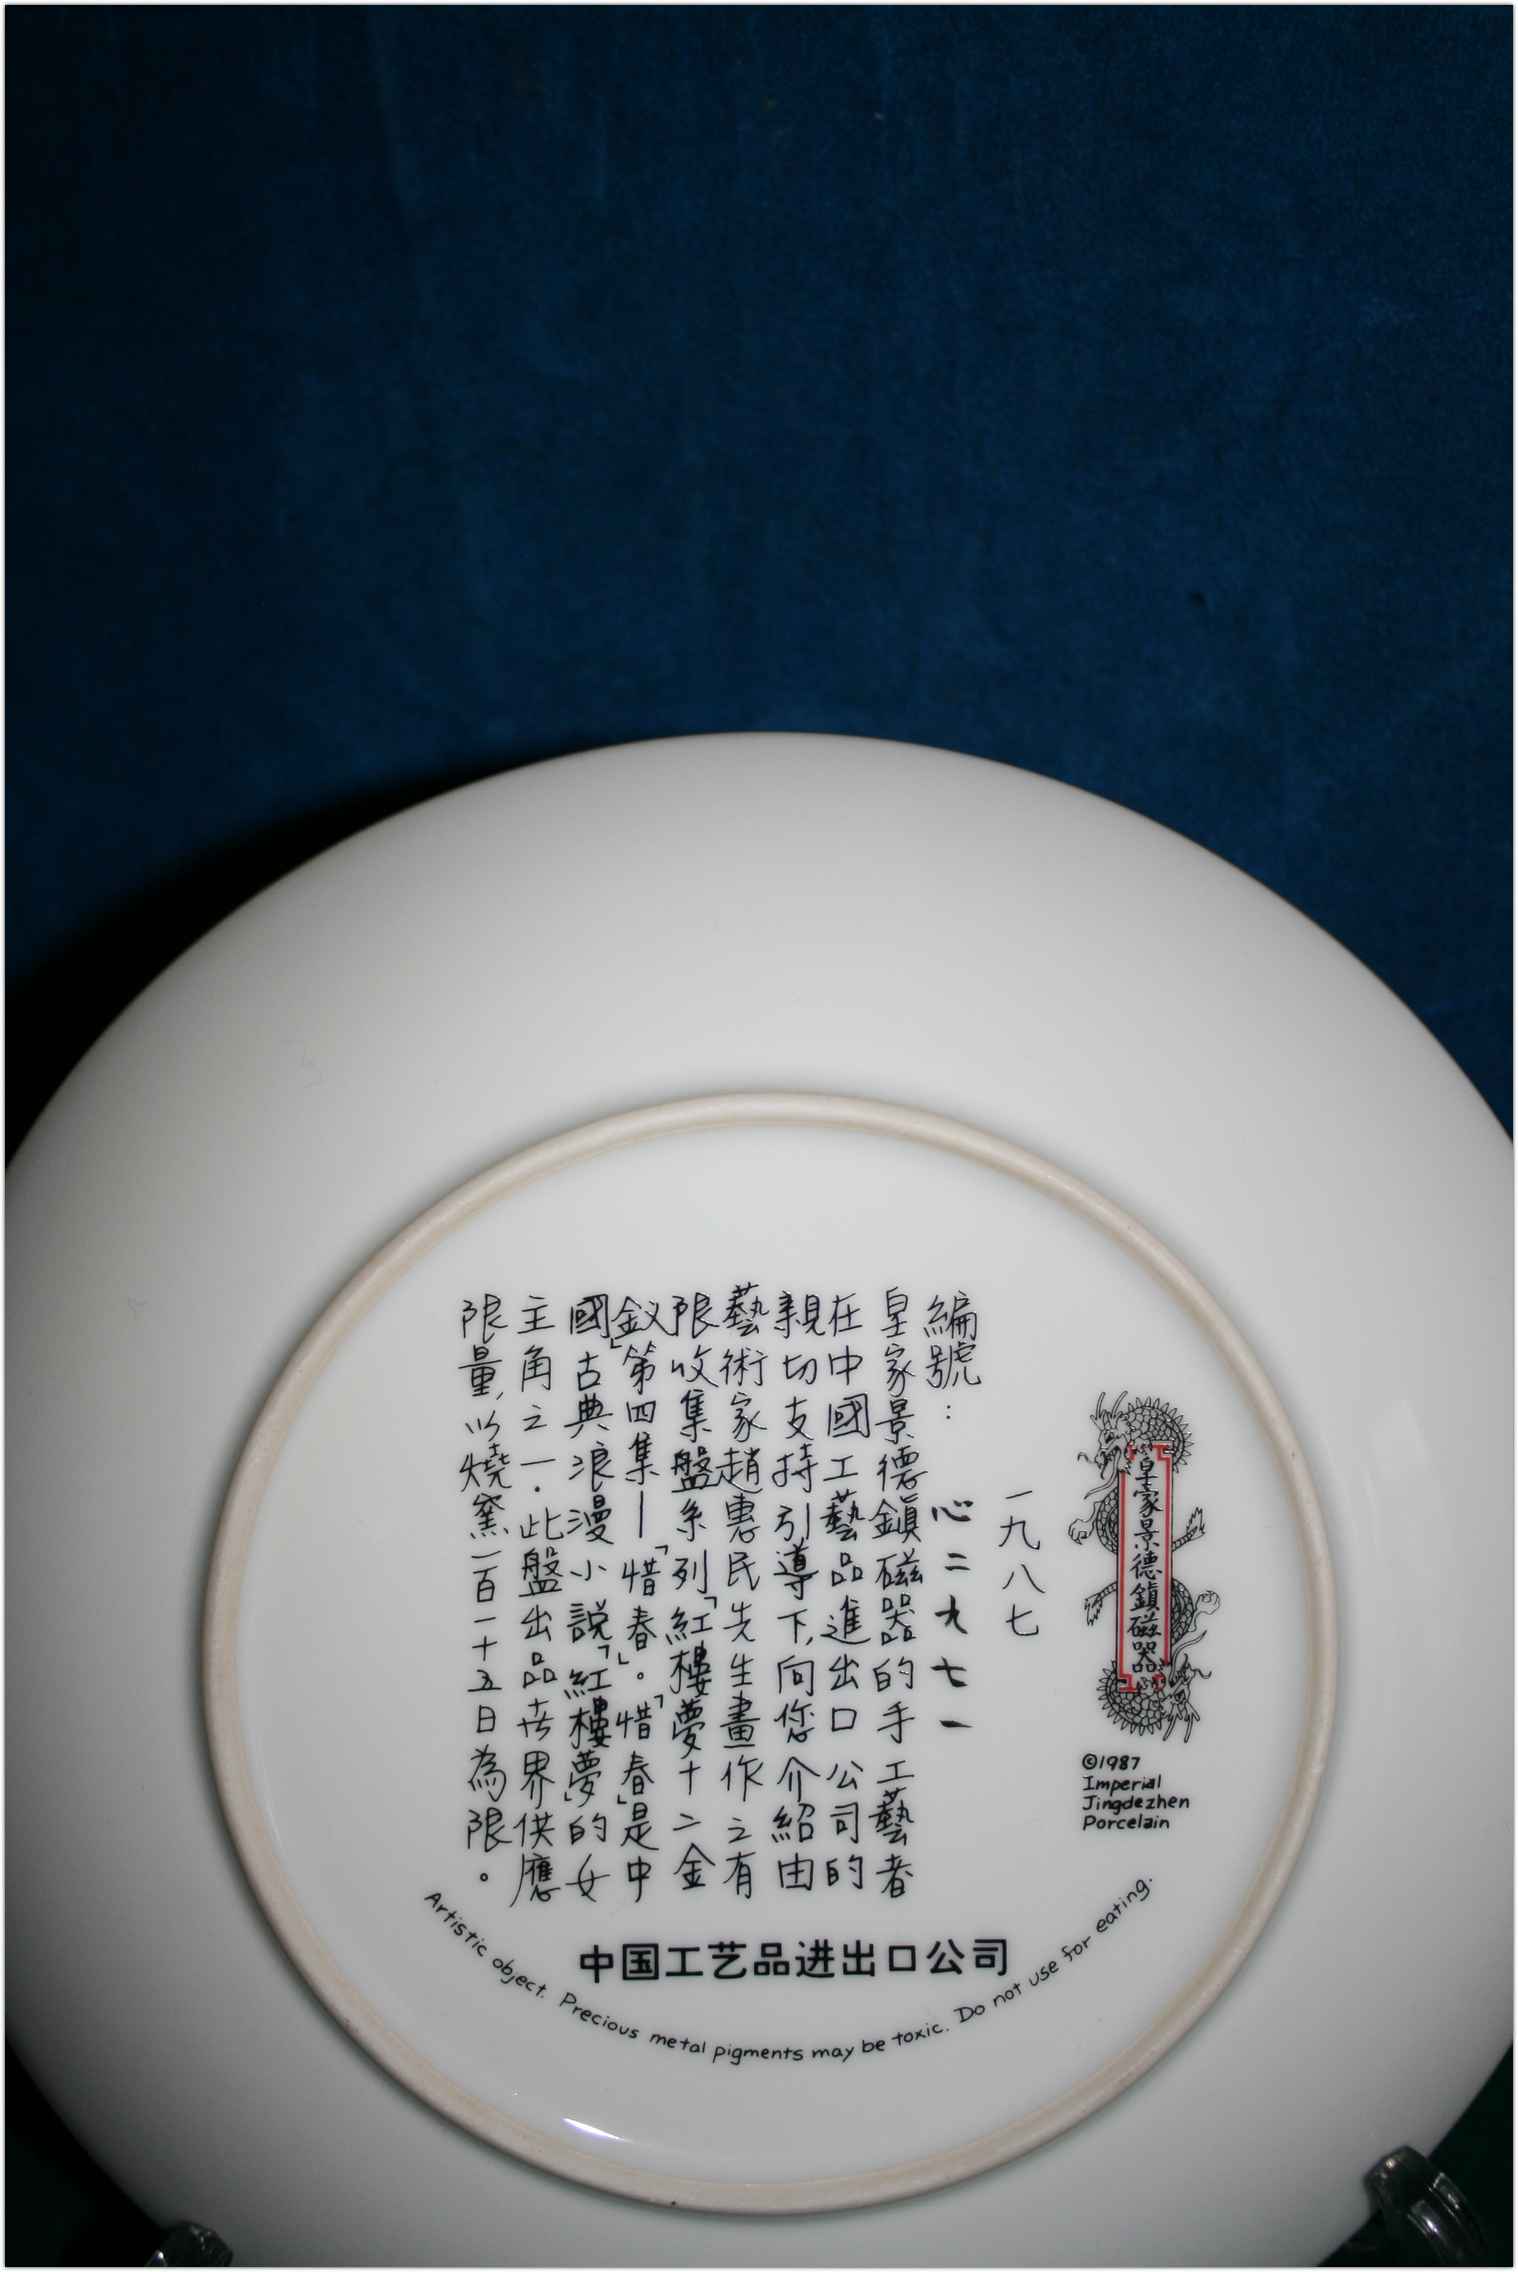 皇家景德鎮磁器
©1987
Imperial
Jingdezhen
Porcelain
一九八七
編號：心二九七一
皇家景德鎮磁器的手工藝者
在中國工藝品進出口公司的
親切支持引導下，向您介紹由
藝術家趙惠民先生畫作之有
限收集盤系列「紅樓夢十二金
釵」第四集—「惜春」。「惜春」是中
國古典浪漫小說「紅樓夢」的女
主角之一．此盤出品世界供應
限量，以燒窯一百一十五日為限。
中国工艺品进出口公司
Artistic object. Precious metal pigments may be toxic. Do not use for eating.